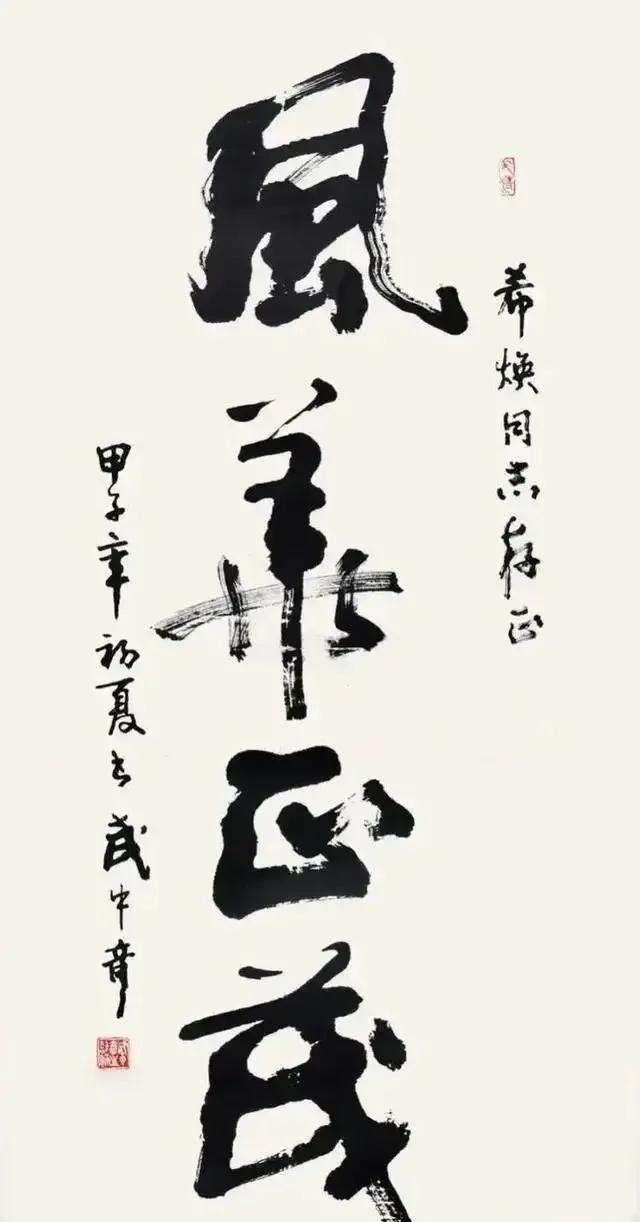 希焕同志存正
風華正茂
甲子年初夏书 武中奇